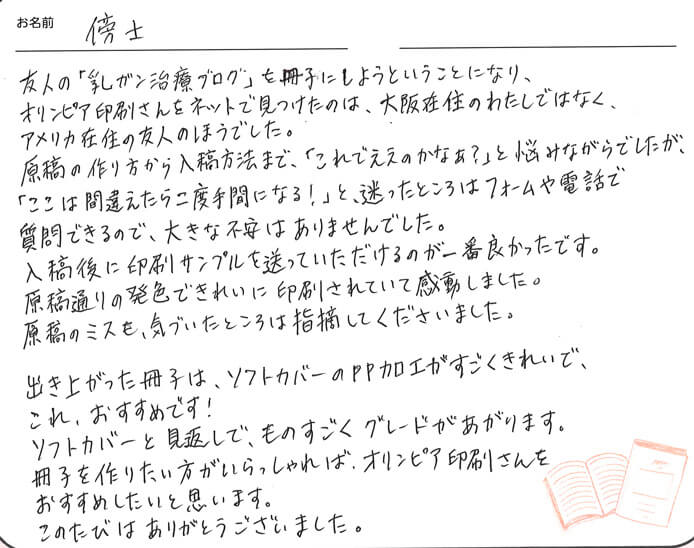 お名前 傍士
友人の「乳ガン治療ブログ」を冊子にしようということになり、
オリンピア印刷さんをネットで見つけたのは、大阪在住のわたしではなく、
アメリカ在住の友人のほうでした。
原稿の作り方から入稿方法まで、「これでええのかなぁ?」と悩みながらでしたが、
「ここは間違えたら二度手間になる!」と、迷ったところはフォームや電話で
質問できるので、大きな不安はありませんでした。
入稿後に印刷サンプルを送っていただけるのが一番良かったです。
原稿通りの発色できれいに印刷されていて感動しました。
原稿のミスも、気づいたところは指摘してくださいました。
出き上がった冊子は、ソフトカバーのPP加工がすごくきれいで、
これ、おすすめです!
ソフトカバーと見返しで、ものすごくグレードがあがります。
冊子を作りたい方がいらっしゃれば、オリンピア印刷さんを
おすすめしたいと思います。
このたびはありがとうございました。